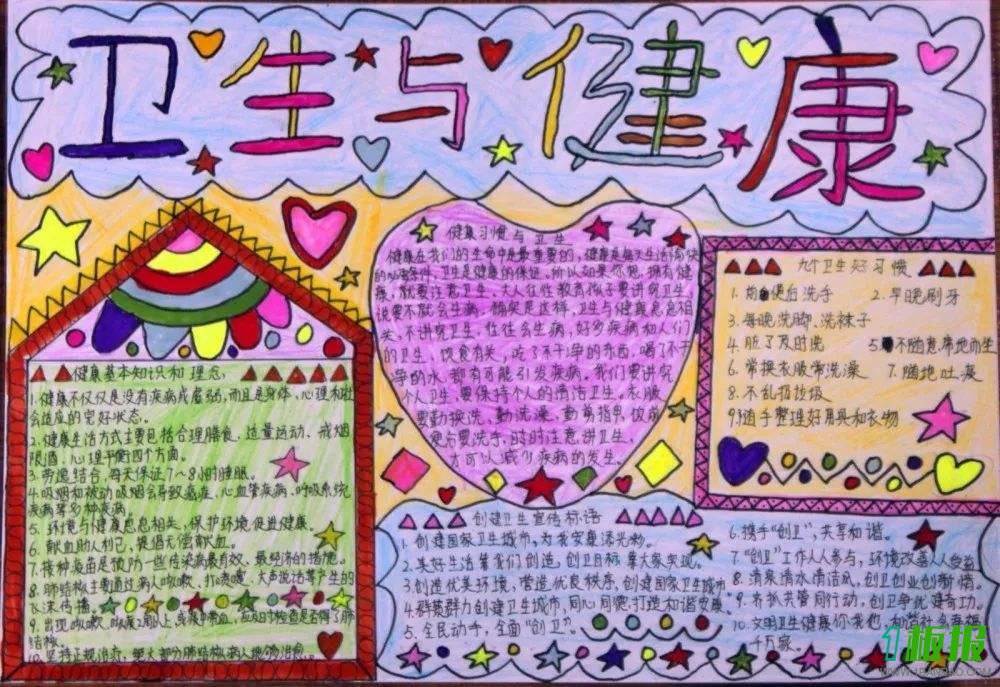 卫生与健康
健康习惯与卫生
健康在我们的生命中是最重要的，健康是每天生活愉快
的必要条件，卫生是健康的保证，所以如果你想拥有健
康，就要注意卫生，大人往往教育孩子要讲究卫生，
说要不就会生病，确实是这样，卫生与健康息息相
关，不讲究卫生，往往会生病，好多疾病和人们
的卫生，饮食有关，吃了不干净的东西，喝了不干
净的水，都有可能引发疾病。我们要讲究
个人卫生，要保持个人的清洁卫生，衣服
要勤换洗，勤洗澡，勤剪指甲，饭前
便后要洗手，时时注意讲卫生，
才可以减少疾病的发生。
九个卫生好习惯
1. 前便后洗手 2. 早晚刷牙
3. 每晚洗脚、洗袜子
4. 脏了及时洗 5. 不随意席地而坐
6. 常换衣服常洗澡 7. 随地吐痰
8. 不乱扔垃圾
9. 随手整理好用具和衣物
健康基本知识和理念：
1. 健康不仅仅是没有疾病或虚弱，而且是身体、心理和社
会适应的完好状态。
2. 健康生活方式主要包括合理膳食、适量运动、戒烟
限酒、心理平衡四个方面。
3. 劳逸结合，每天保证7～8小时睡眠。
4. 吸烟和被动吸烟会导致癌症、心血管疾病、呼吸系统
疾病等多种疾病。
5. 环境与健康息息相关，保护环境促进健康。
6. 献血助人利己，提倡无偿献血。
7. 接种疫苗是预防一些传染病最有效、最经济的措施。
8. 肺结核主要通过病人咳嗽、打喷嚏、大声说话等产生的
飞沫传播。
9. 出现咳嗽、咳痰2周以上，或痰中带血，应及时检查是否得了肺
结核。
10. 坚持正规治疗，绝大部分肺结核病人能够治愈。
创建卫生宣传标语
1. 创建国家卫生城市，为我安康添光彩。
2. 美好生活靠我们创造，创卫目标靠大家实现。
3. 创造优美环境，营造优良秩序，创建国家卫生城市
4. 群策群力创建卫生城市，同心同德，打造和谐安康
5. 全民动手，全面“创卫”。
6. 携手“创卫”，共享和谐。
7. “创卫”工作人人参与，环境改善人人受益
8. 清泉清水清洁风，创卫创业创新情。
9. 齐抓共管同行动，创卫争优建奇功。
10. 文明卫生健康你我他，和谐社会幸福
千万家。
板报
WWW.1BANBAO.COM